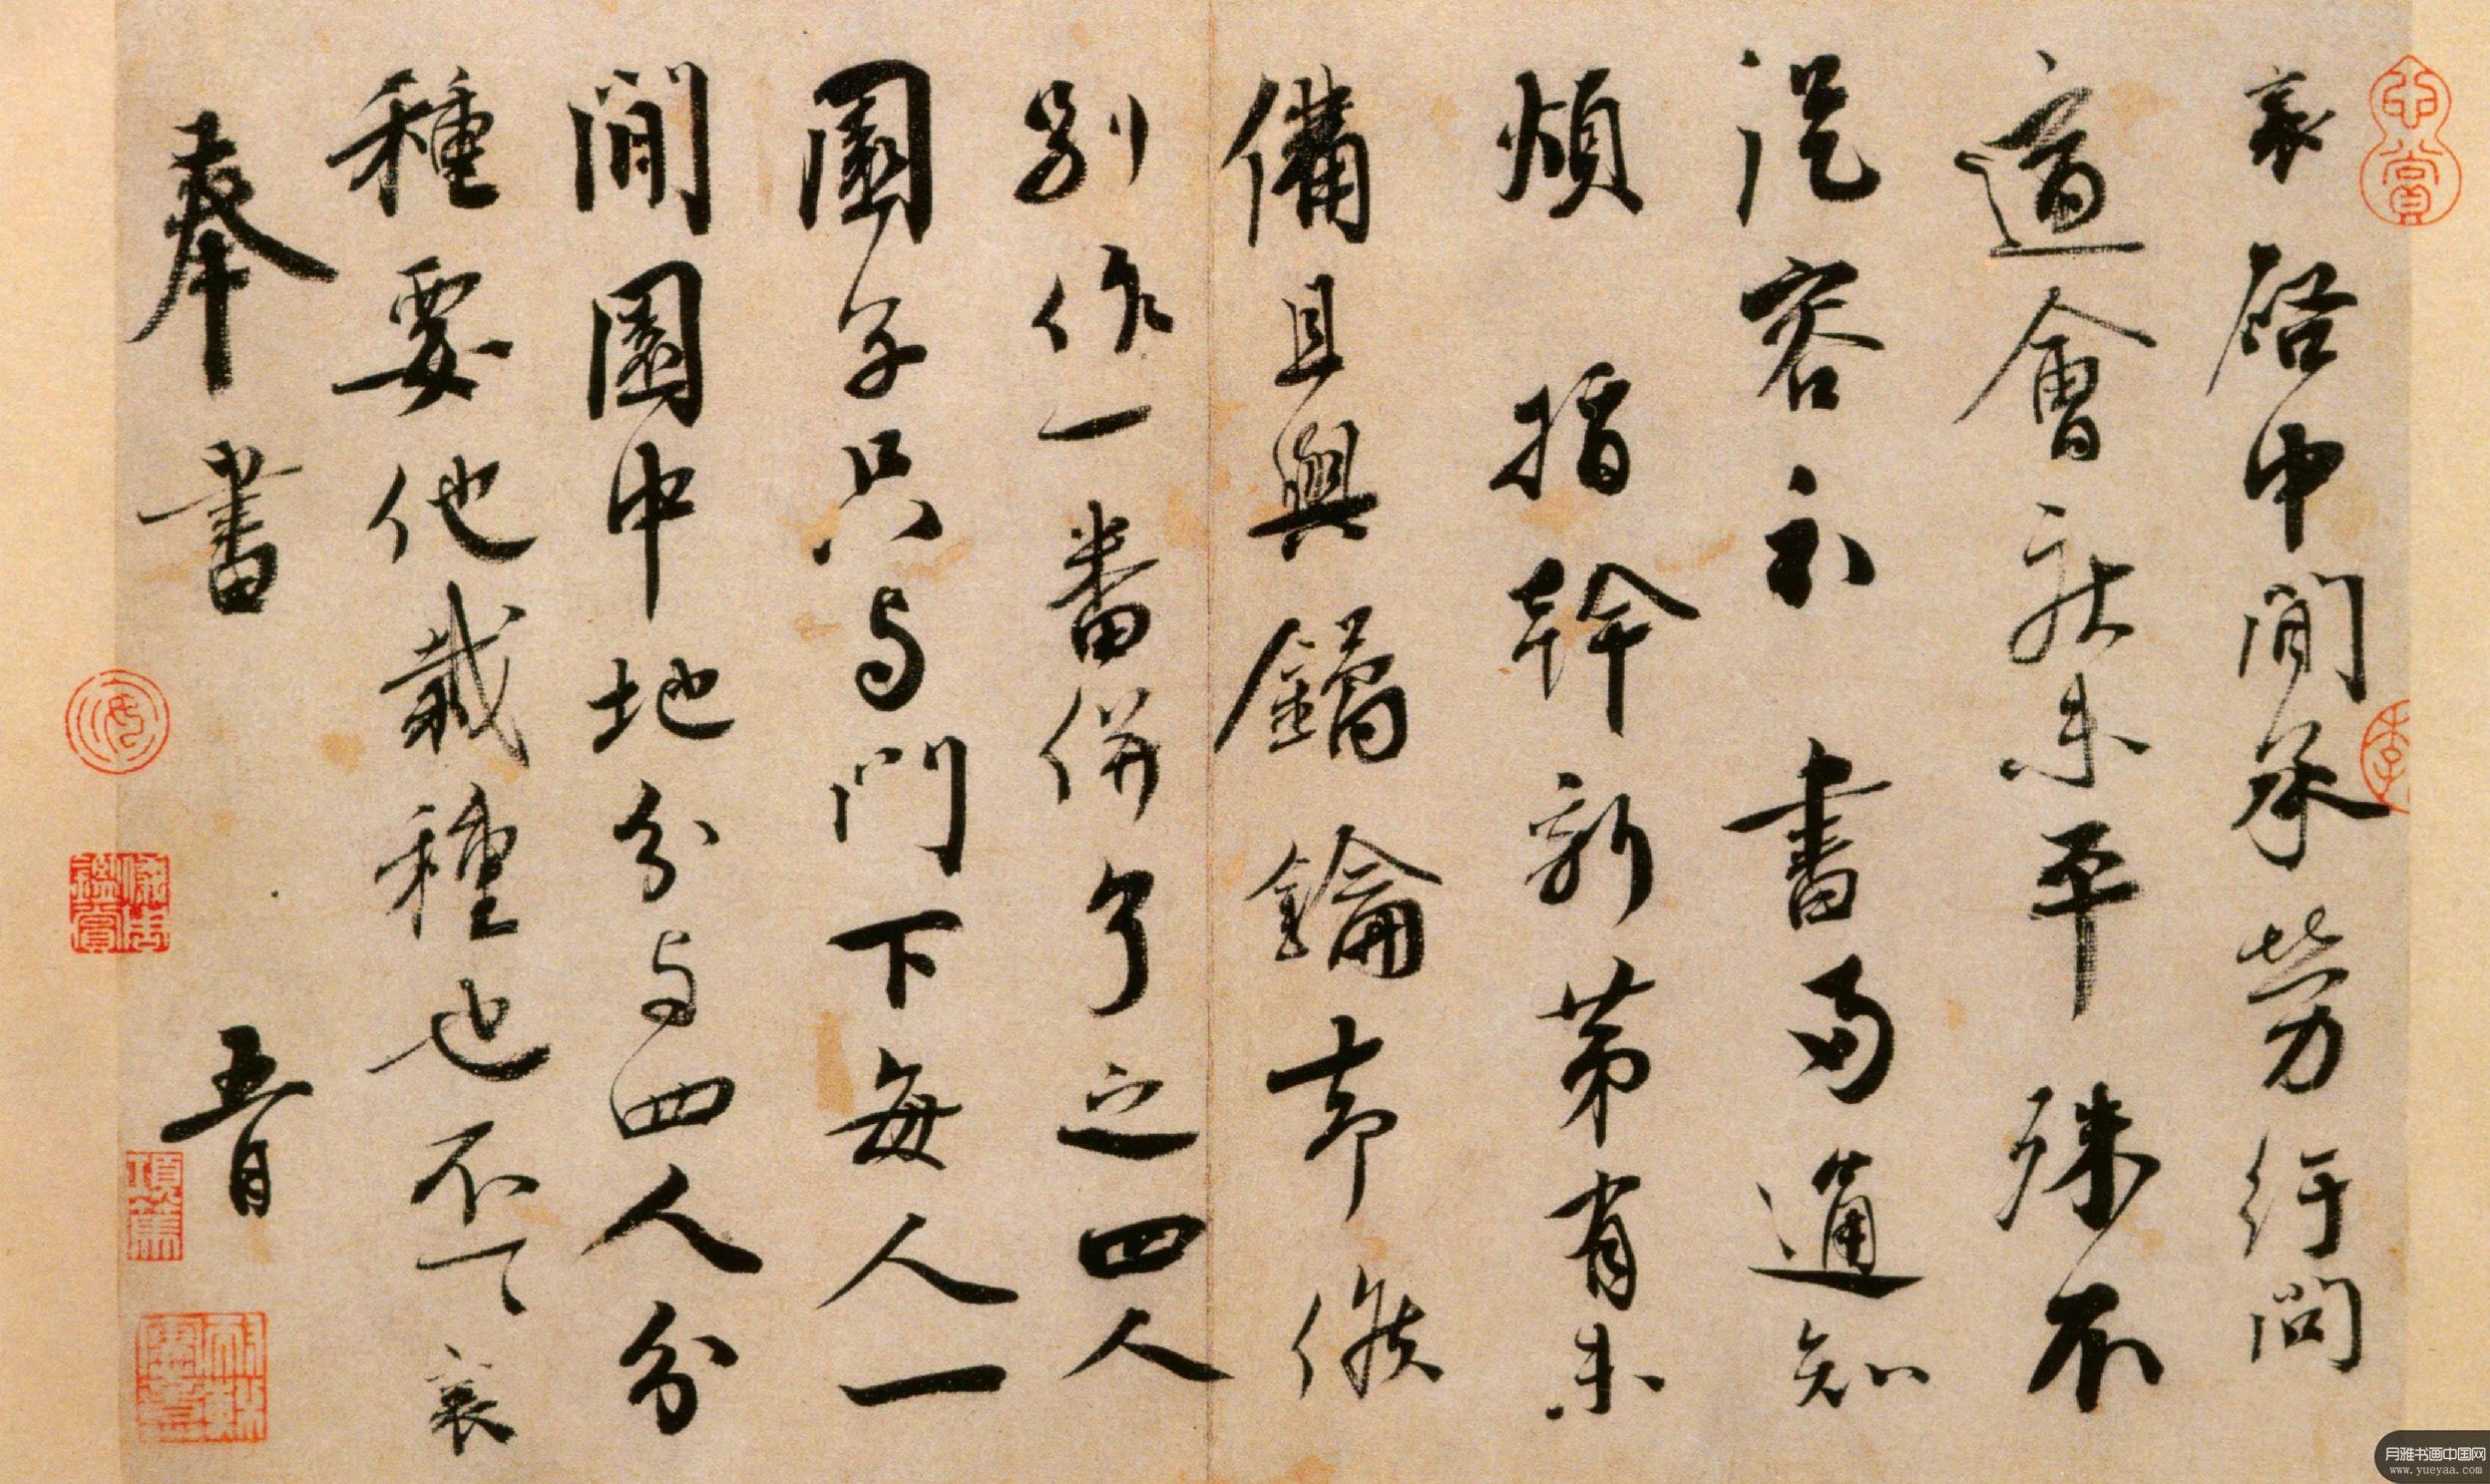 襄啓中間承勞行問
適會未平殊不
從容示書通知
煩指幹新第有未
備且與鐍鑰却候
別作一番併了之四人
園子只与門下每人一
間園中地分与四人分
種要他栽種也不一一襄
奉書 五月
月雅书画中国网
www.yueyaa.com